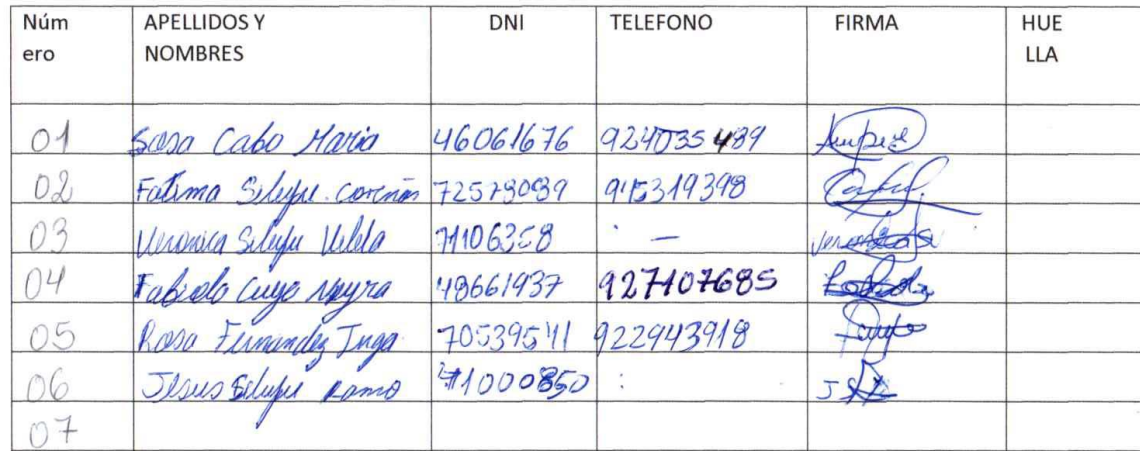 Núm APELLIDOS Y DNI TELEFONO FIRMA HUE
ero NOMBRES LLA
01 Sosa Cabo Maria 46061676 924035489
02 Fatima Silupu 72579089 945319398
03 Veronica Silupu Vilela 71106358 -
04 Fabiola Cuyo Mayra 48661937 927107685
05 Rosa Fernandez Inga 70539541 922943918
06 Jesus Silupu Ramo 71000850
07